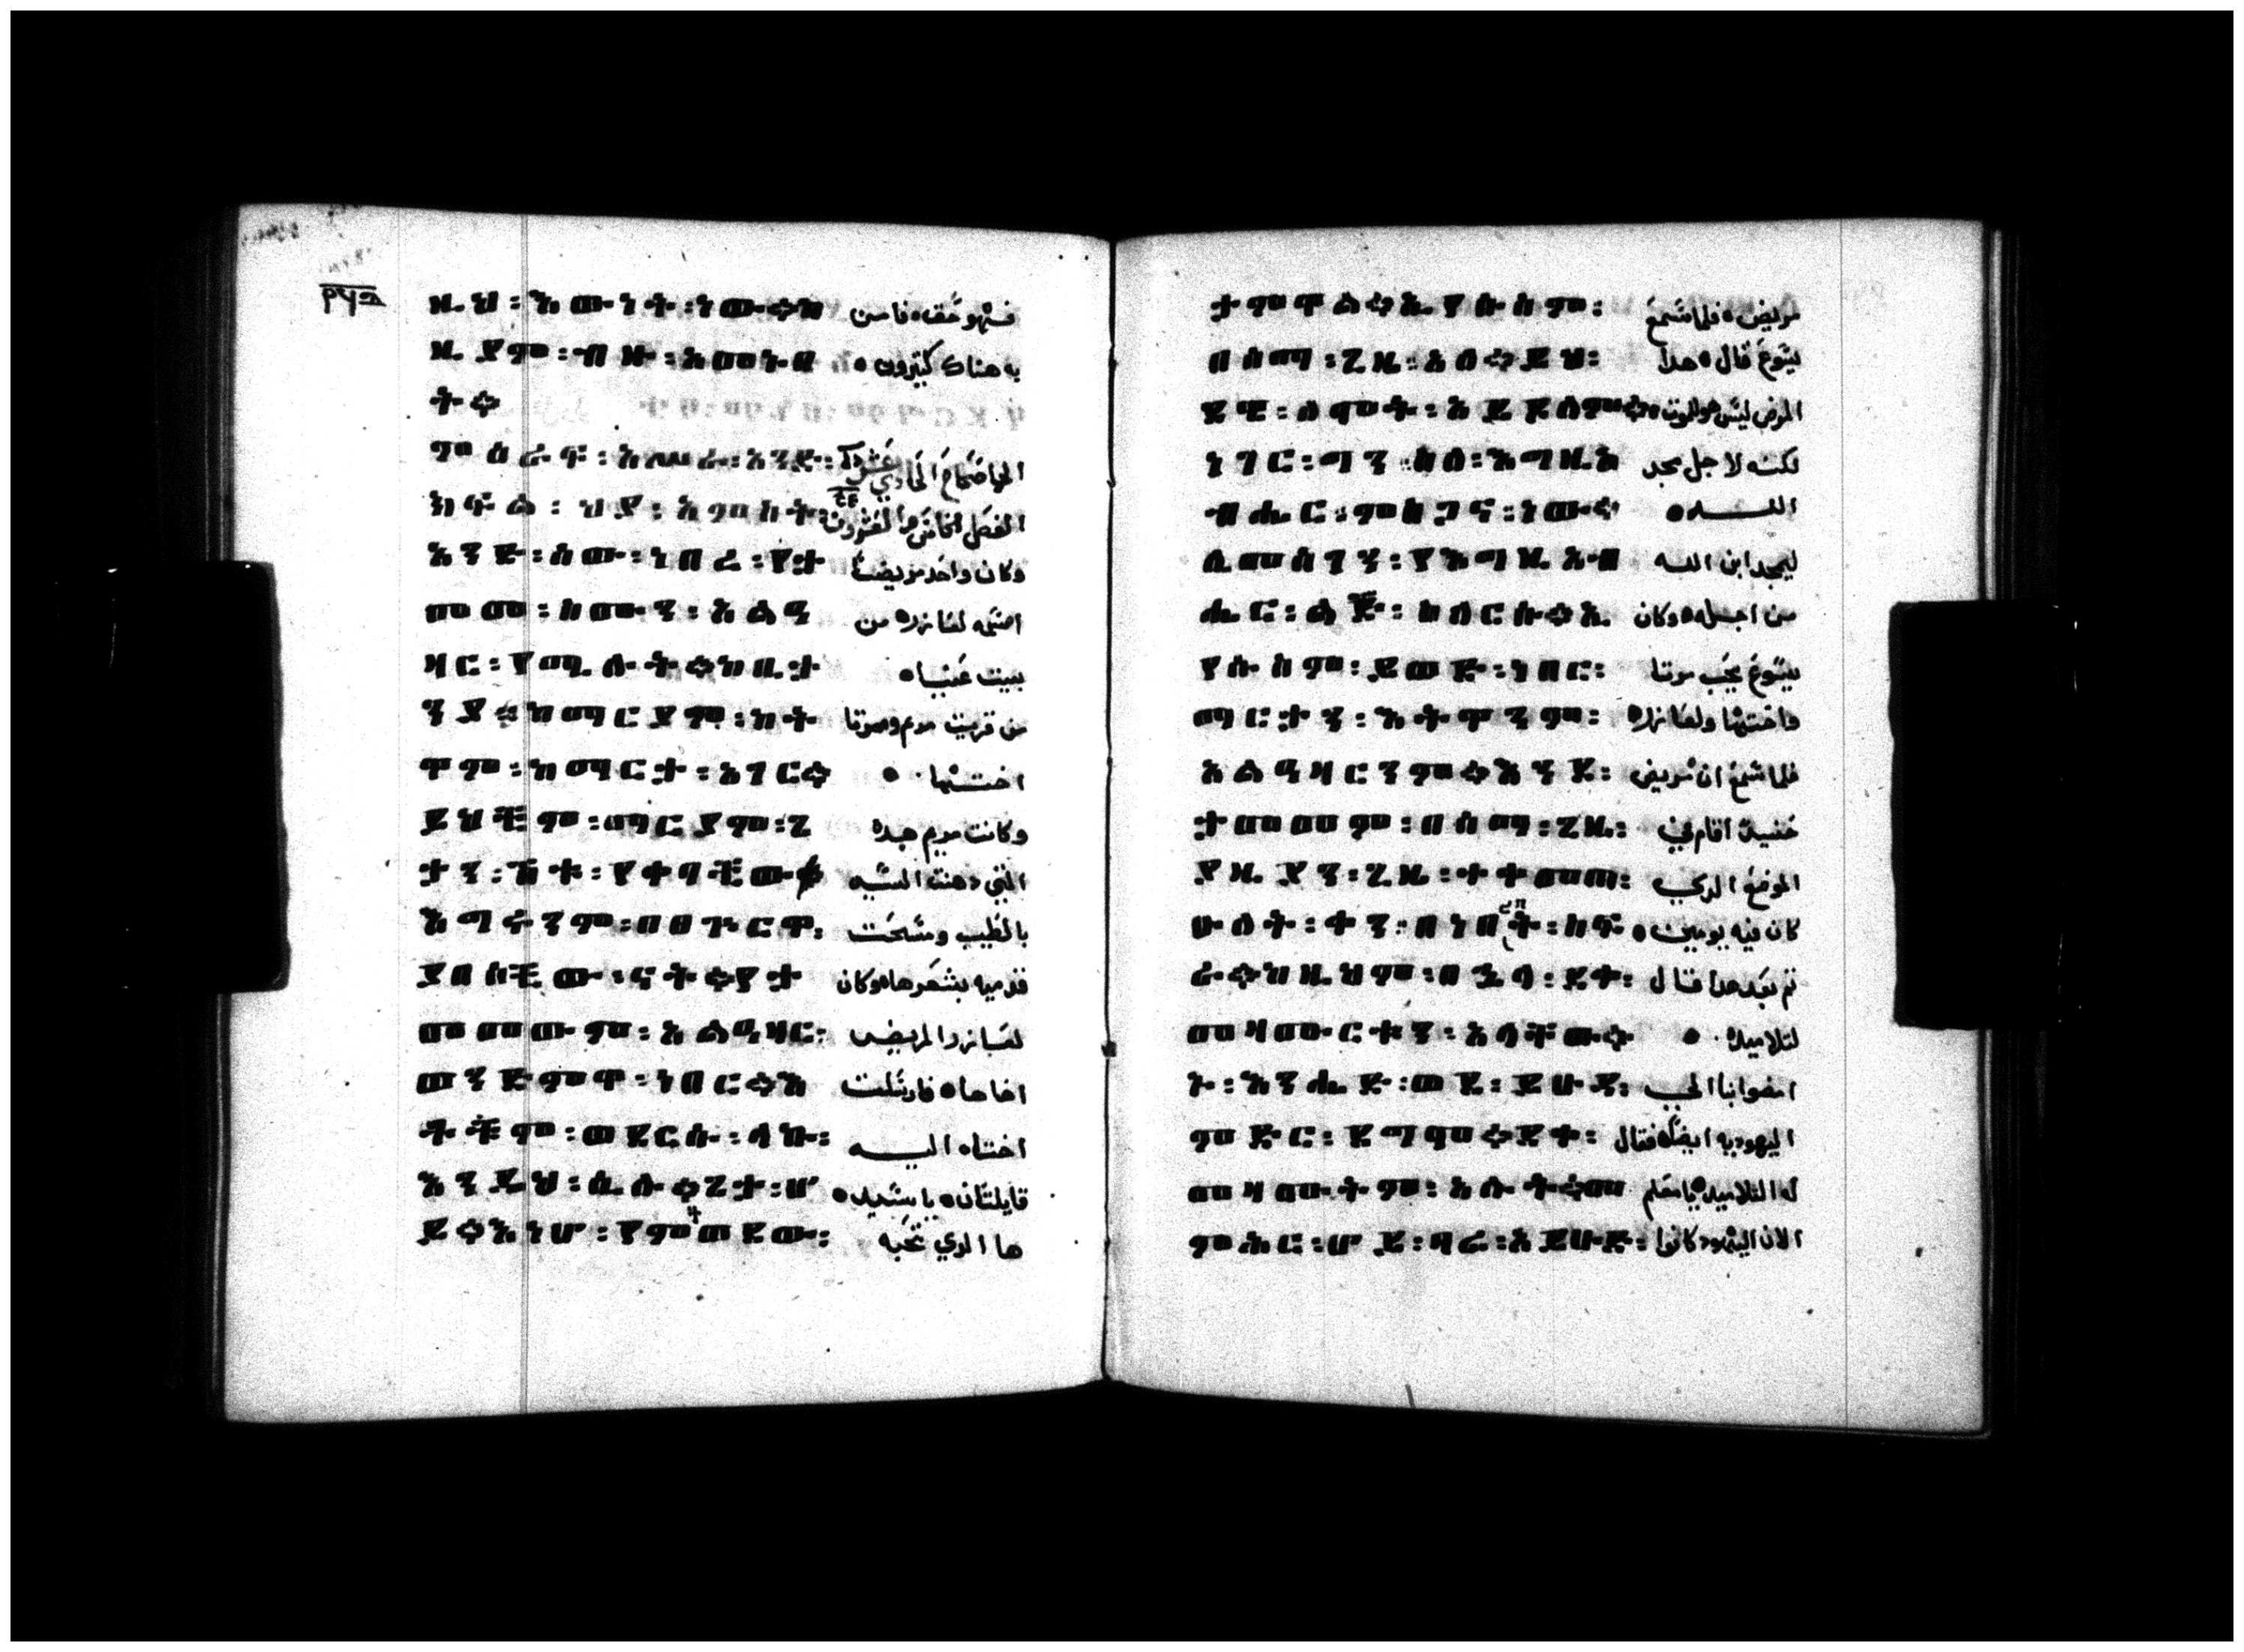 ዚህ ፡ እውነት ፡ ነው።በ فهو حق ٥ فامن
ዚያም ፡ ብዙ ፡ አመኑበ به هناك كتيرون ٥
ት።
ምዕራፍ ፡ አሥራ ፡ አንድ ፡ الاصحاح الحادي عشر
ክፍል ፡ ህያ ፡ አምስት ፡ الفصل الخامس والعشرون
አንድ ፡ ሰው ፡ ነበረ ፡ የታ وكان واحد مريضا
መመ ፡ ስሙን ፡ አልዓ اسمه لعازر ٥ من
ዛር ፡ የሚሉት።ከቢታ بيت عنيا ٥
ንያ ፡ ከማርያም ፡ እት من قرية مريم ومرتا
ዋም ፡ ከማርታ ፡ አገር። اختها ٥
ይህችም ፡ ማርያም ፡ ጌ وكانت مريم هده
ታን ፡ ሽቱ ፡ የቀባችው። التي دهنت السيد
እግሩንም ፡ በፀጉርዋ ፡ بالطيب ومسحت
ያበሰችው ፡ ናት።የታ قدميه بشعرها ٥ وكان
መመውም ፡ አልዓዛር ፡ لعازر المريض
ወንድምዋ ፡ ነበር።እ اخاها ٥ فارسلت
ቶችም ፡ ወደርሱ ፡ ላኩ ፡ اختاه اليه
እንዲህ ፡ ሲሉ።ጌታ ፡ ሆ قايلتان ٥ يا سيد ٥
ይ።እነሆ ፡ የምትወደው ፡ ها الدي تحبه
ታምዋል።ኢየሱስም ፡ مريض ٥ فلما سمع
በሰማ ፡ ጊዜ ፡ አለ።ይህ ፡ يسوع قال ٥ هدا
ደዌ ፡ ለሞት ፡ አይደለም። المرض ليس هو للموت
ነገር ፡ ግን ፡ ስለ ፡ እግዚአ لكنه لاجل مجد
ብሔር ፡ ምስጋና ፡ ነው። الله ٥
ሊመሰገን ፡ የእግዚአብ ليمجد ابن الله
ሔር ፡ ልጅ ፡ ስለርሱ።ኢ من اجله ٥ وكان
የሱስም ፡ ይወድ ፡ ነበር ፡ يسوع يحب مرتا
ማርታን ፡ እትዋንም ፡ واختها ولعازر ٥
አልዓዛርንም።እንደ ፡ فلما سمع ان مريض
ታመመም ፡ በሰማ ፡ ጊዜ ፡ حينيد اقام في
ያዚያን ፡ ጊዜ ፡ ተቀመጠ ፡ الموضع الدي
ሁለት ፡ ቀን ፡ በነበበት ፡ ስፍ كان فيه يومين ٥
ራ።ከዚህም ፡ በኋላ ፡ ደቀ ፡ تم بعد هدا قال
መዛሙርቱን ፡ አላቸው። لتلاميده ٥
ኑ ፡ እንሒድ ፡ ወደ ፡ ይሁዳ ፡ امضوا بنا الي
ምድር ፡ ደግሞ።ደቀ ፡ اليهوديه ايضا ٥ فقال
መዛሙርቱም ፡ አሉት።መ له التلاميد ٥ يا معلم
ምህር ፡ ሆይ ፡ ዛሬ ፡ አይሁድ ፡ الان اليهود كانوا